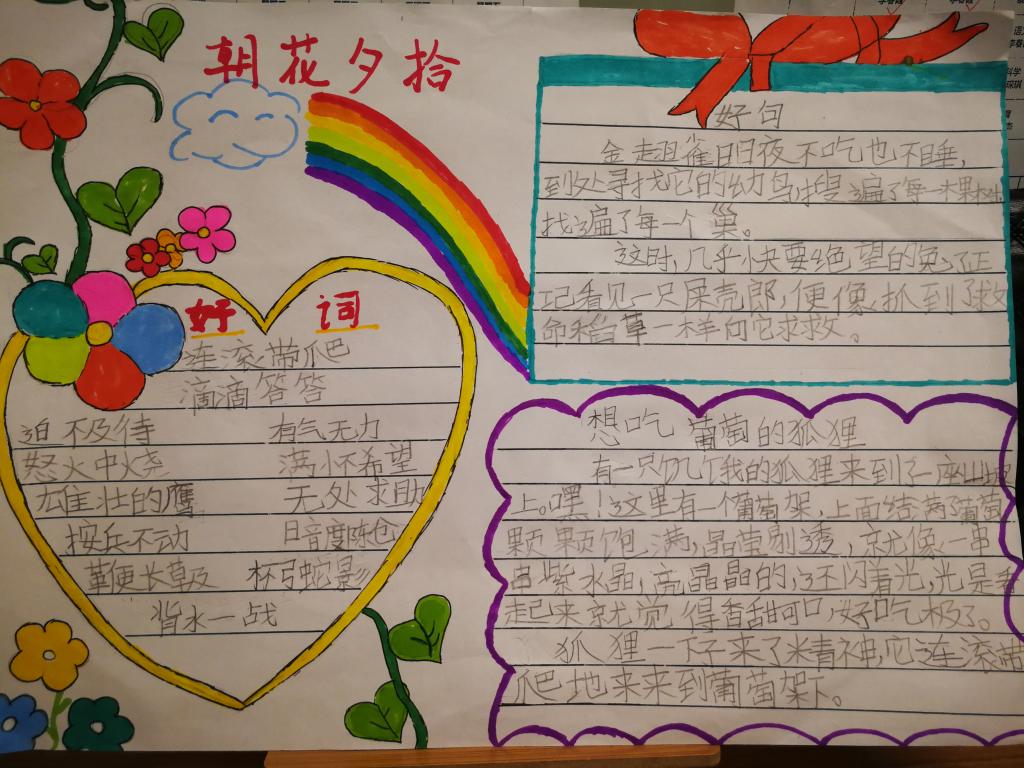 朝花夕拾
好词
连滚带爬
滴滴答答
迫不及待 有气无力
怒火中烧 满怀希望
雄壮的鹰 无处求助
按兵不动 暗度陈仓
鞭长莫及 杯弓蛇影
背水一战
好句
金翅雀日日夜夜不吃也不睡,
到处寻找它的幼鸟,搜遍了每一棵树
找遍了每一个巢。
这时,几乎快要绝望的兔子正
看见一只屎壳郎,便像抓到了救
命稻草一样向它求救。
想吃葡萄的狐狸
有一只饥饿的狐狸来到了一座山坡
上。嘿!这里有一个葡萄架,上面结满了葡萄
颗颗饱满,晶莹剔透,就像一串
串紫水晶,亮晶晶的,还闪着光,光是看
起来就觉得香甜可口,好吃极了。
狐狸一下子来了精神,它连滚带
爬地来来到葡萄架下。